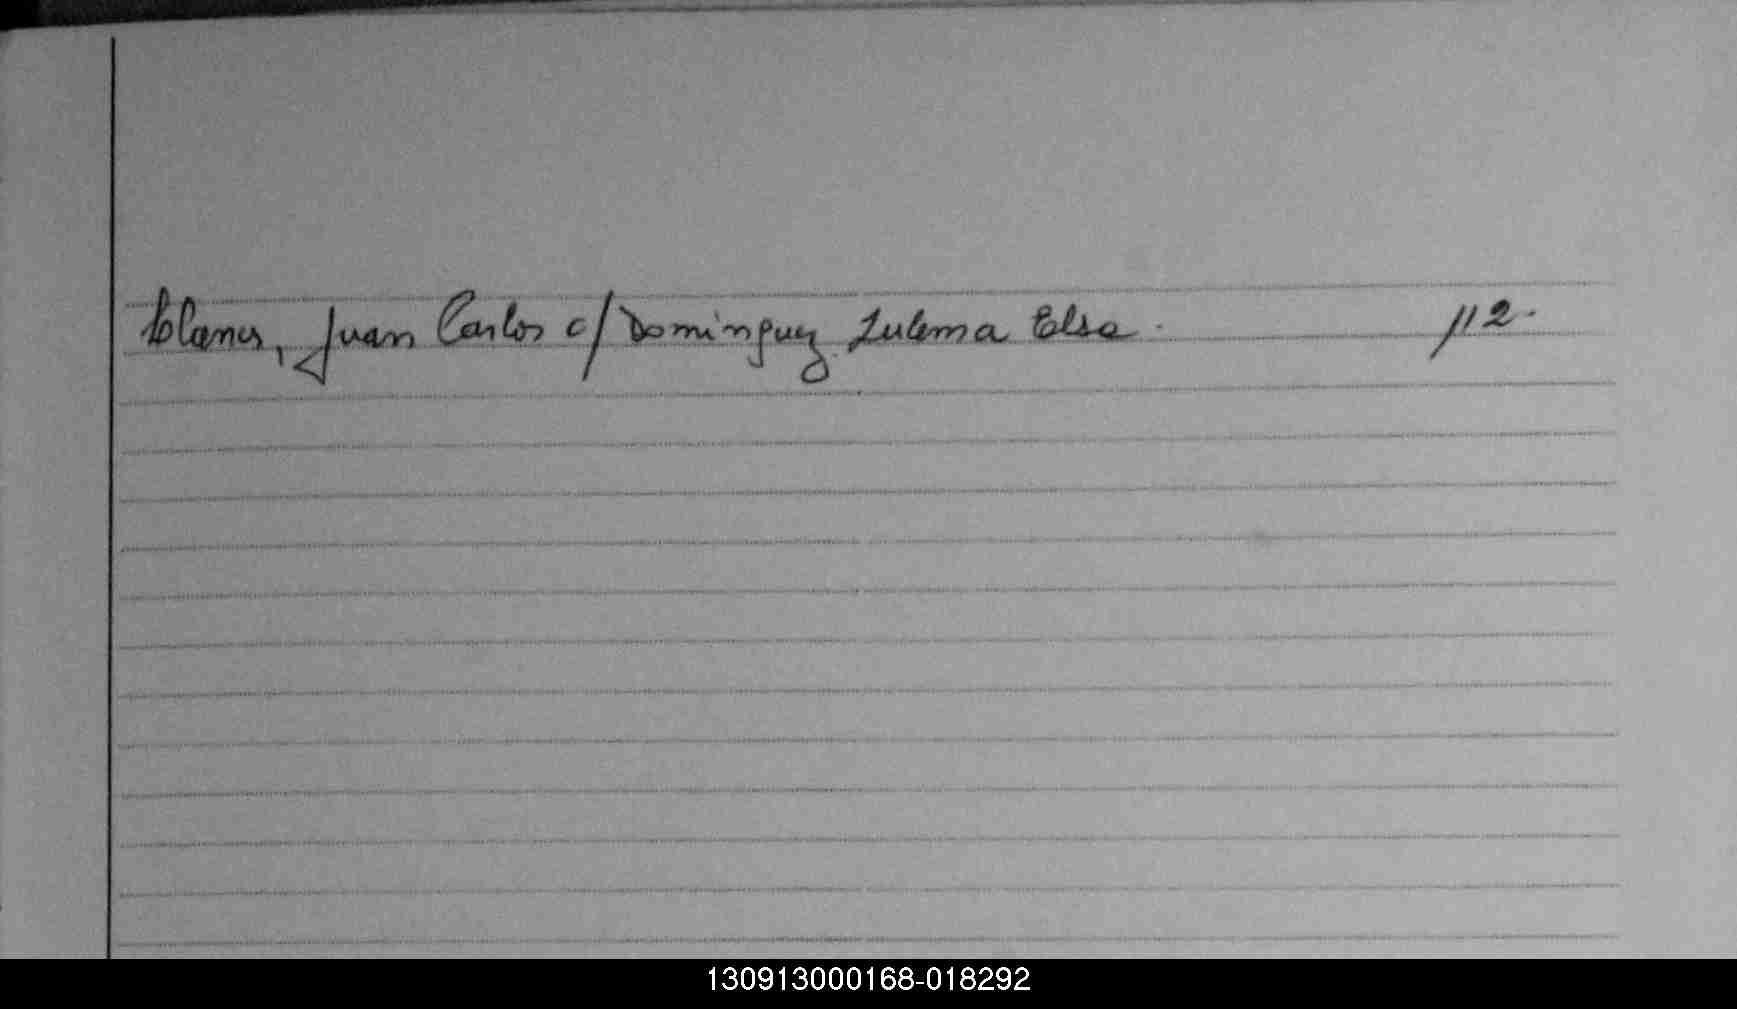 Llanes, Juan Carlos c/ Dominguez Zulema Elsa. 112.
130913000168-018292